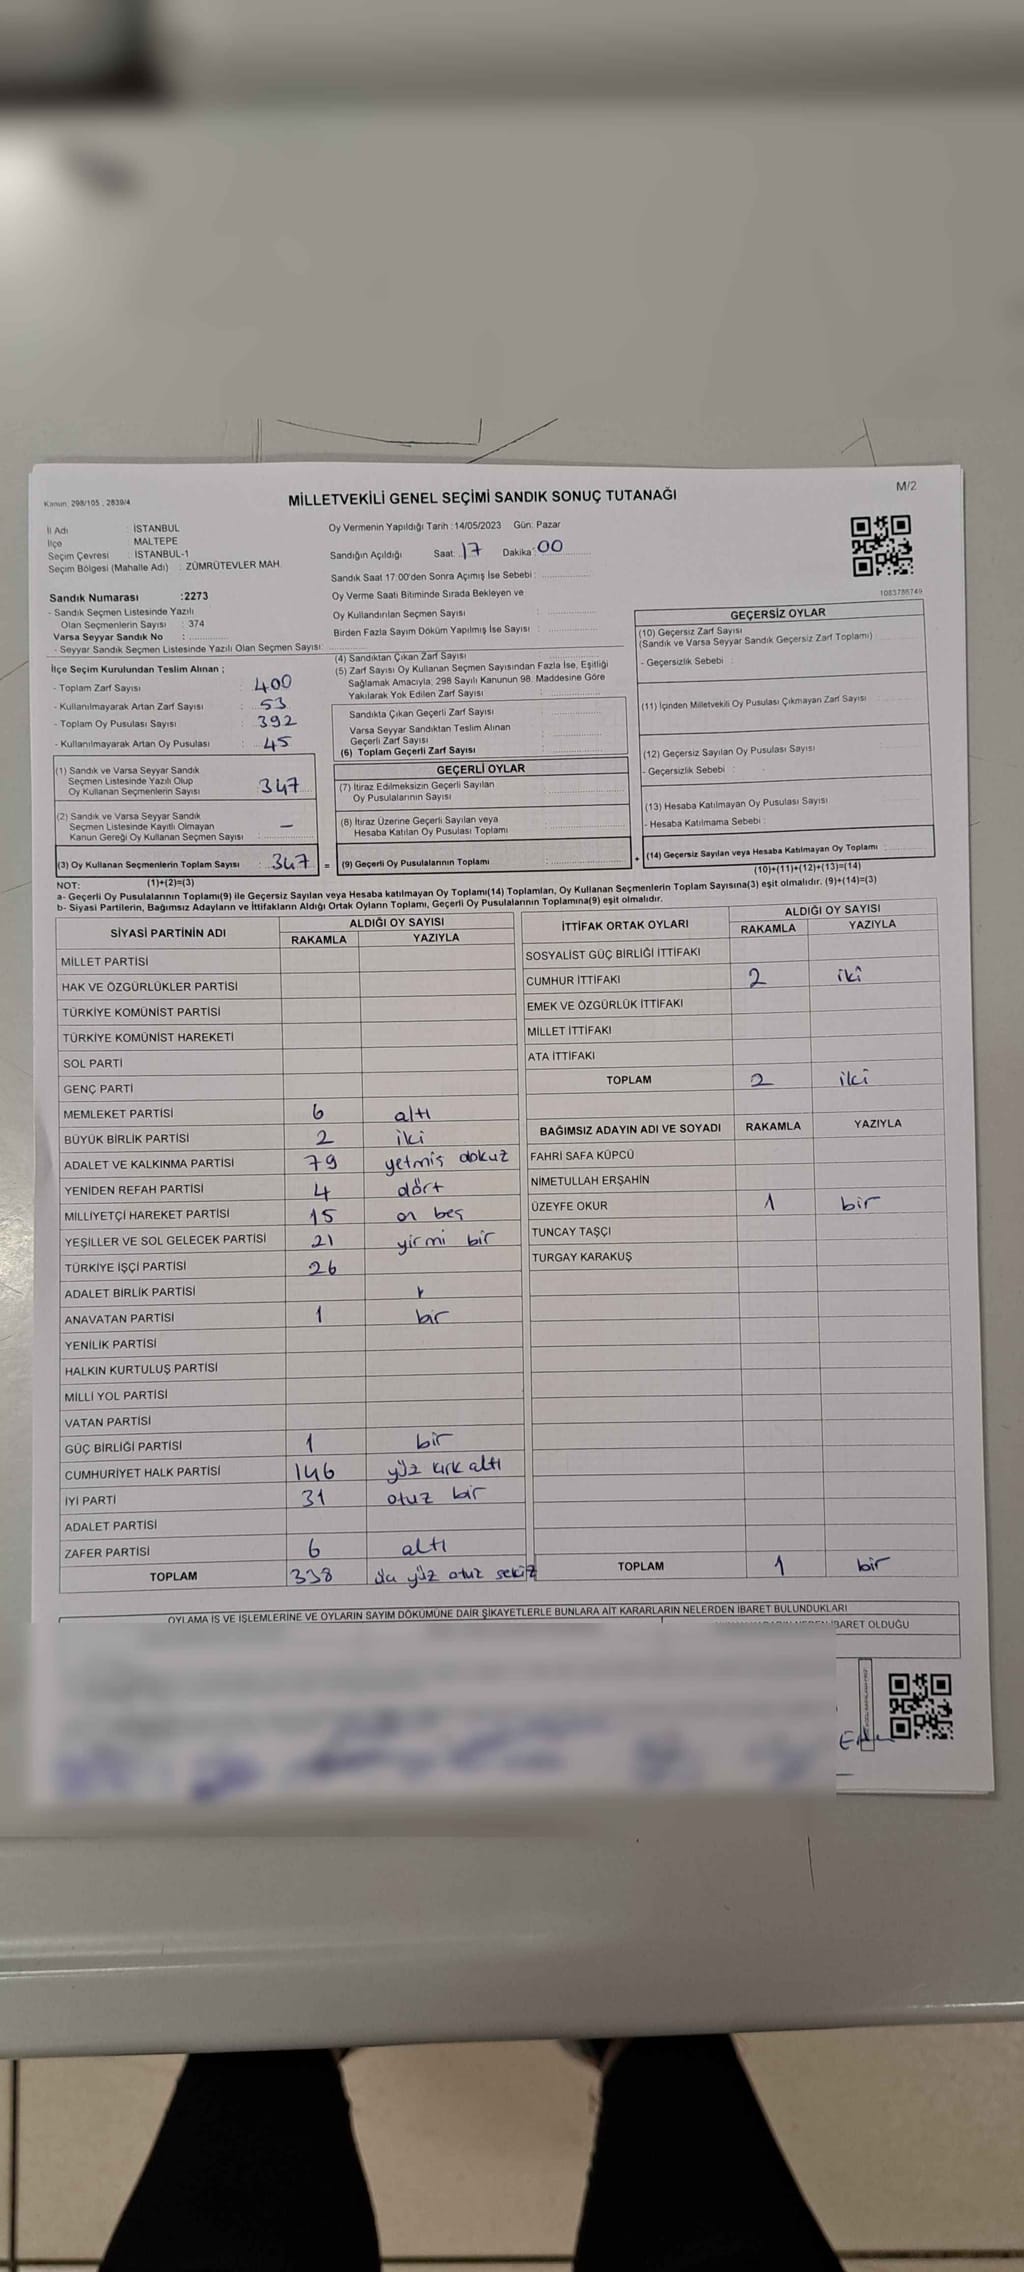 Kanun: 298/105 , 2839/4
MİLLETVEKİLİ GENEL SEÇİMİ SANDIK SONUÇ TUTANAĞI
M/2
İl Adı : İSTANBUL
İlçe : MALTEPE
Seçim Çevresi : İSTANBUL-1
Seçim Bölgesi (Mahalle Adı) : ZÜMRÜTEVLER MAH.
Oy Vermenin Yapıldığı Tarih : 14/05/2023 Gün: Pazar
Sandığın Açıldığı Saat: 17 Dakika: 00
Sandık Saat 17:00'den Sonra Açımış İse Sebebi :
Oy Verme Saati Bitiminde Sırada Bekleyen ve
Oy Kullandırılan Seçmen Sayısı :
Birden Fazla Sayım Döküm Yapılmış İse Sayısı :
1083786749
Sandık Numarası :2273
- Sandık Seçmen Listesinde Yazılı
Olan Seçmenlerin Sayısı : 374
Varsa Seyyar Sandık No :
- Seyyar Sandık Seçmen Listesinde Yazılı Olan Seçmen Sayısı:
İlçe Seçim Kurulundan Teslim Alınan ;
- Toplam Zarf Sayısı : 400
- Kullanılmayarak Artan Zarf Sayısı : 53
- Toplam Oy Pusulası Sayısı : 392
- Kullanılmayarak Artan Oy Pusulası : 45
(1) Sandık ve Varsa Seyyar Sandık
Seçmen Listesinde Yazılı Olup
Oy Kullanan Seçmenlerin Sayısı : 347
(2) Sandık ve Varsa Seyyar Sandık
Seçmen Listesinde Kayıtlı Olmayan
Kanun Gereği Oy Kullanan Seçmen Sayısı : –
(3) Oy Kullanan Seçmenlerin Toplam Sayısı : 347 =
(1)+(2)=(3)
(4) Sandıktan Çıkan Zarf Sayısı
(5) Zarf Sayısı Oy Kullanan Seçmen Sayısından Fazla İse, Eşitliği
Sağlamak Amacıyla, 298 Sayılı Kanunun 98. Maddesine Göre
Yakılarak Yok Edilen Zarf Sayısı :
Sandıkta Çıkan Geçerli Zarf Sayısı :
Varsa Seyyar Sandıktan Teslim Alınan
Geçerli Zarf Sayısı :
(6) Toplam Geçerli Zarf Sayısı :
GEÇERLİ OYLAR
(7) İtiraz Edilmeksizin Geçerli Sayılan
Oy Pusulalarının Sayısı :
(8) İtiraz Üzerine Geçerli Sayılan veya
Hesaba Katılan Oy Pusulası Toplamı :
(9) Geçerli Oy Pusulalarının Toplamı : +
GEÇERSİZ OYLAR
(10) Geçersiz Zarf Sayısı
(Sandık ve Varsa Seyyar Sandık Geçersiz Zarf Toplamı)
- Geçersizlik Sebebi :
(11) İçinden Milletvekili Oy Pusulası Çıkmayan Zarf Sayısı
(12) Geçersiz Sayılan Oy Pusulası Sayısı
- Geçersizlik Sebebi :
(13) Hesaba Katılmayan Oy Pusulası Sayısı
- Hesaba Katılmama Sebebi :
(14) Geçersiz Sayılan veya Hesaba Katılmayan Oy Toplamı :
(10)+(11)+(12)+(13)=(14)
NOT:
a- Geçerli Oy Pusulalarının Toplamı(9) ile Geçersiz Sayılan veya Hesaba katılmayan Oy Toplamı(14) Toplamları, Oy Kullanan Seçmenlerin Toplam Sayısına(3) eşit olmalıdır. (9)+(14)=(3)
b- Siyasi Partilerin, Bağımsız Adayların ve İttifakların Aldığı Ortak Oyların Toplamı, Geçerli Oy Pusulalarının Toplamına(9) eşit olmalıdır.
SİYASİ PARTİNİN ADI ALDIĞI OY SAYISI
RAKAMLA YAZIYLA
MİLLET PARTİSİ
HAK VE ÖZGÜRLÜKLER PARTİSİ
TÜRKİYE KOMÜNİST PARTİSİ
TÜRKİYE KOMÜNİST HAREKETİ
SOL PARTİ
GENÇ PARTİ
MEMLEKET PARTİSİ 6 altı
BÜYÜK BİRLİK PARTİSİ 2 iki
ADALET VE KALKINMA PARTİSİ 79 yetmiş dokuz
YENİDEN REFAH PARTİSİ 4 dört
MİLLİYETÇİ HAREKET PARTİSİ 15 on beş
YEŞİLLER VE SOL GELECEK PARTİSİ 21 yirmi bir
TÜRKİYE İŞÇİ PARTİSİ 26
ADALET BİRLİK PARTİSİ
ANAVATAN PARTİSİ 1 bir
YENİLİK PARTİSİ
HALKIN KURTULUŞ PARTİSİ
MİLLİ YOL PARTİSİ
VATAN PARTİSİ
GÜÇ BİRLİĞİ PARTİSİ 1 bir
CUMHURİYET HALK PARTİSİ 146 yüz kırk altı
İYİ PARTİ 31 otuz bir
ADALET PARTİSİ
ZAFER PARTİSİ 6 altı
TOPLAM 338 üç yüz otuz sekiz
İTTİFAK ORTAK OYLARI ALDIĞI OY SAYISI
RAKAMLA YAZIYLA
SOSYALİST GÜÇ BİRLİĞİ İTTİFAKI
CUMHUR İTTİFAKI 2 iki
EMEK VE ÖZGÜRLÜK İTTİFAKI
MİLLET İTTİFAKI
ATA İTTİFAKI
TOPLAM 2 iki
BAĞIMSIZ ADAYIN ADI VE SOYADI RAKAMLA YAZIYLA
FAHRİ SAFA KÜPCÜ
NİMETULLAH ERŞAHİN
ÜZEYFE OKUR 1 bir
TUNCAY TAŞÇI
TURGAY KARAKUŞ
TOPLAM 1 bir
OYLAMA İŞ VE İŞLEMLERİNE VE OYLARIN SAYIM DÖKÜMÜNE DAİR ŞİKAYETLERLE BUNLARA AİT KARARLARIN NELERDEN İBARET BULUNDUKLARI
İBARET OLDUĞU